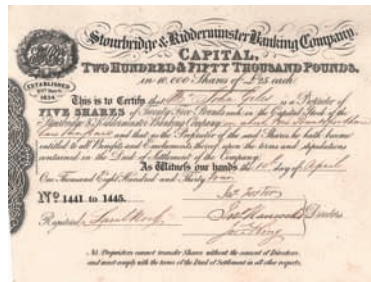 Stourbridge & Kidderminster Banking Company.
CAPITAL,
TWO HUNDRED & FIFTY THOUSAND POUNDS.
in 10,000 Shares of £25 each
ESTABLISHED
1834.
This is to Certify that Mr John Giles is a Proprietor of
FIVE SHARES of Twenty Five Pounds each in the Capital Stock of the
Stourbridge & Kidderminster Banking Company
and that as the Proprietor of the said Shares he hath become
entitled to all Benefits and Emoluments thereof upon the terms and stipulations
contained in the Deed of Settlement of the Company.
As Witness our hands the 10th day of April
One Thousand Eight Hundred and Thirty four
No 1441 to 1445.
Registered
Directors
King
N.B. Proprietors cannot transfer Shares without the consent of Directors
and must comply with the terms of the Deed of Settlement in all other respects.